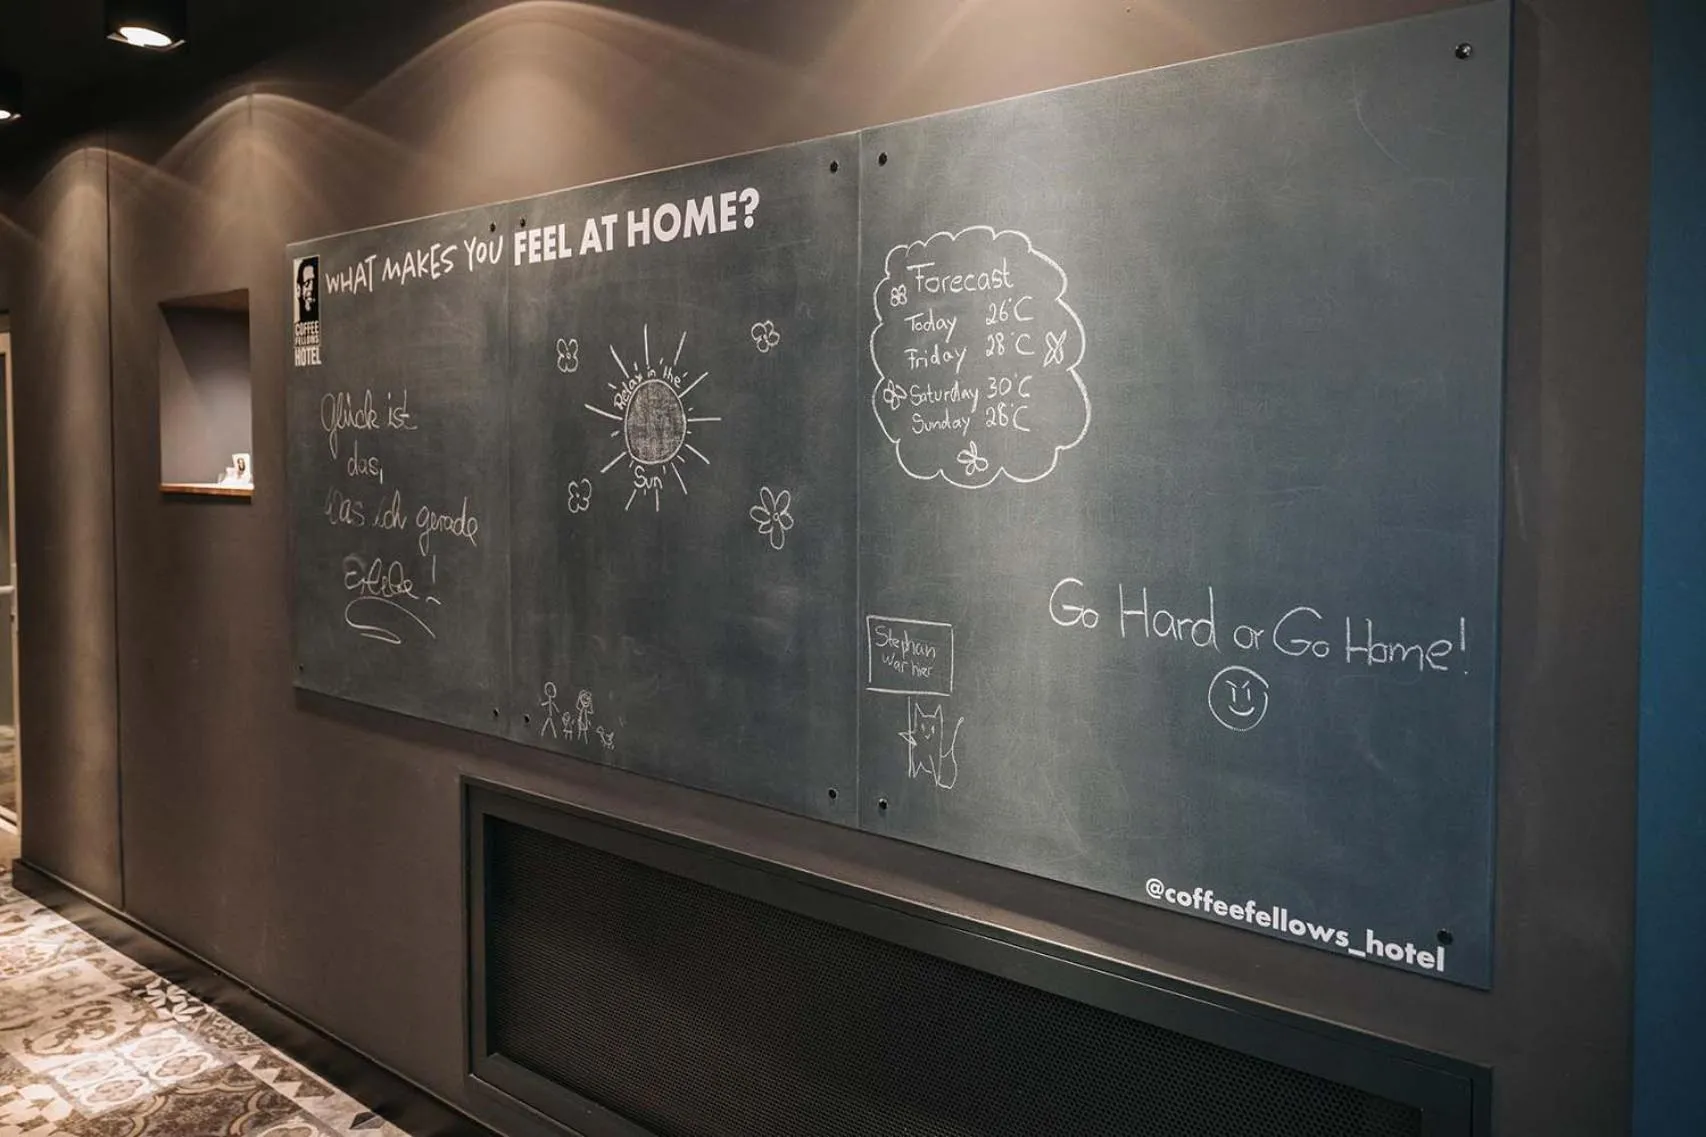 WHAT MAKES YOU FEEL AT HOME?
COFFEE
FELLOWS
HOTEL
Glück ist
das,
Was ich gerade
Erlebe!
Relax in the
Sun
Forecast
Today 26°C
Friday 28°C
Saturday 30°C
Sunday 28°C
Stephan
war hier
Go Hard or Go Home!
@coffeefellows_hotel